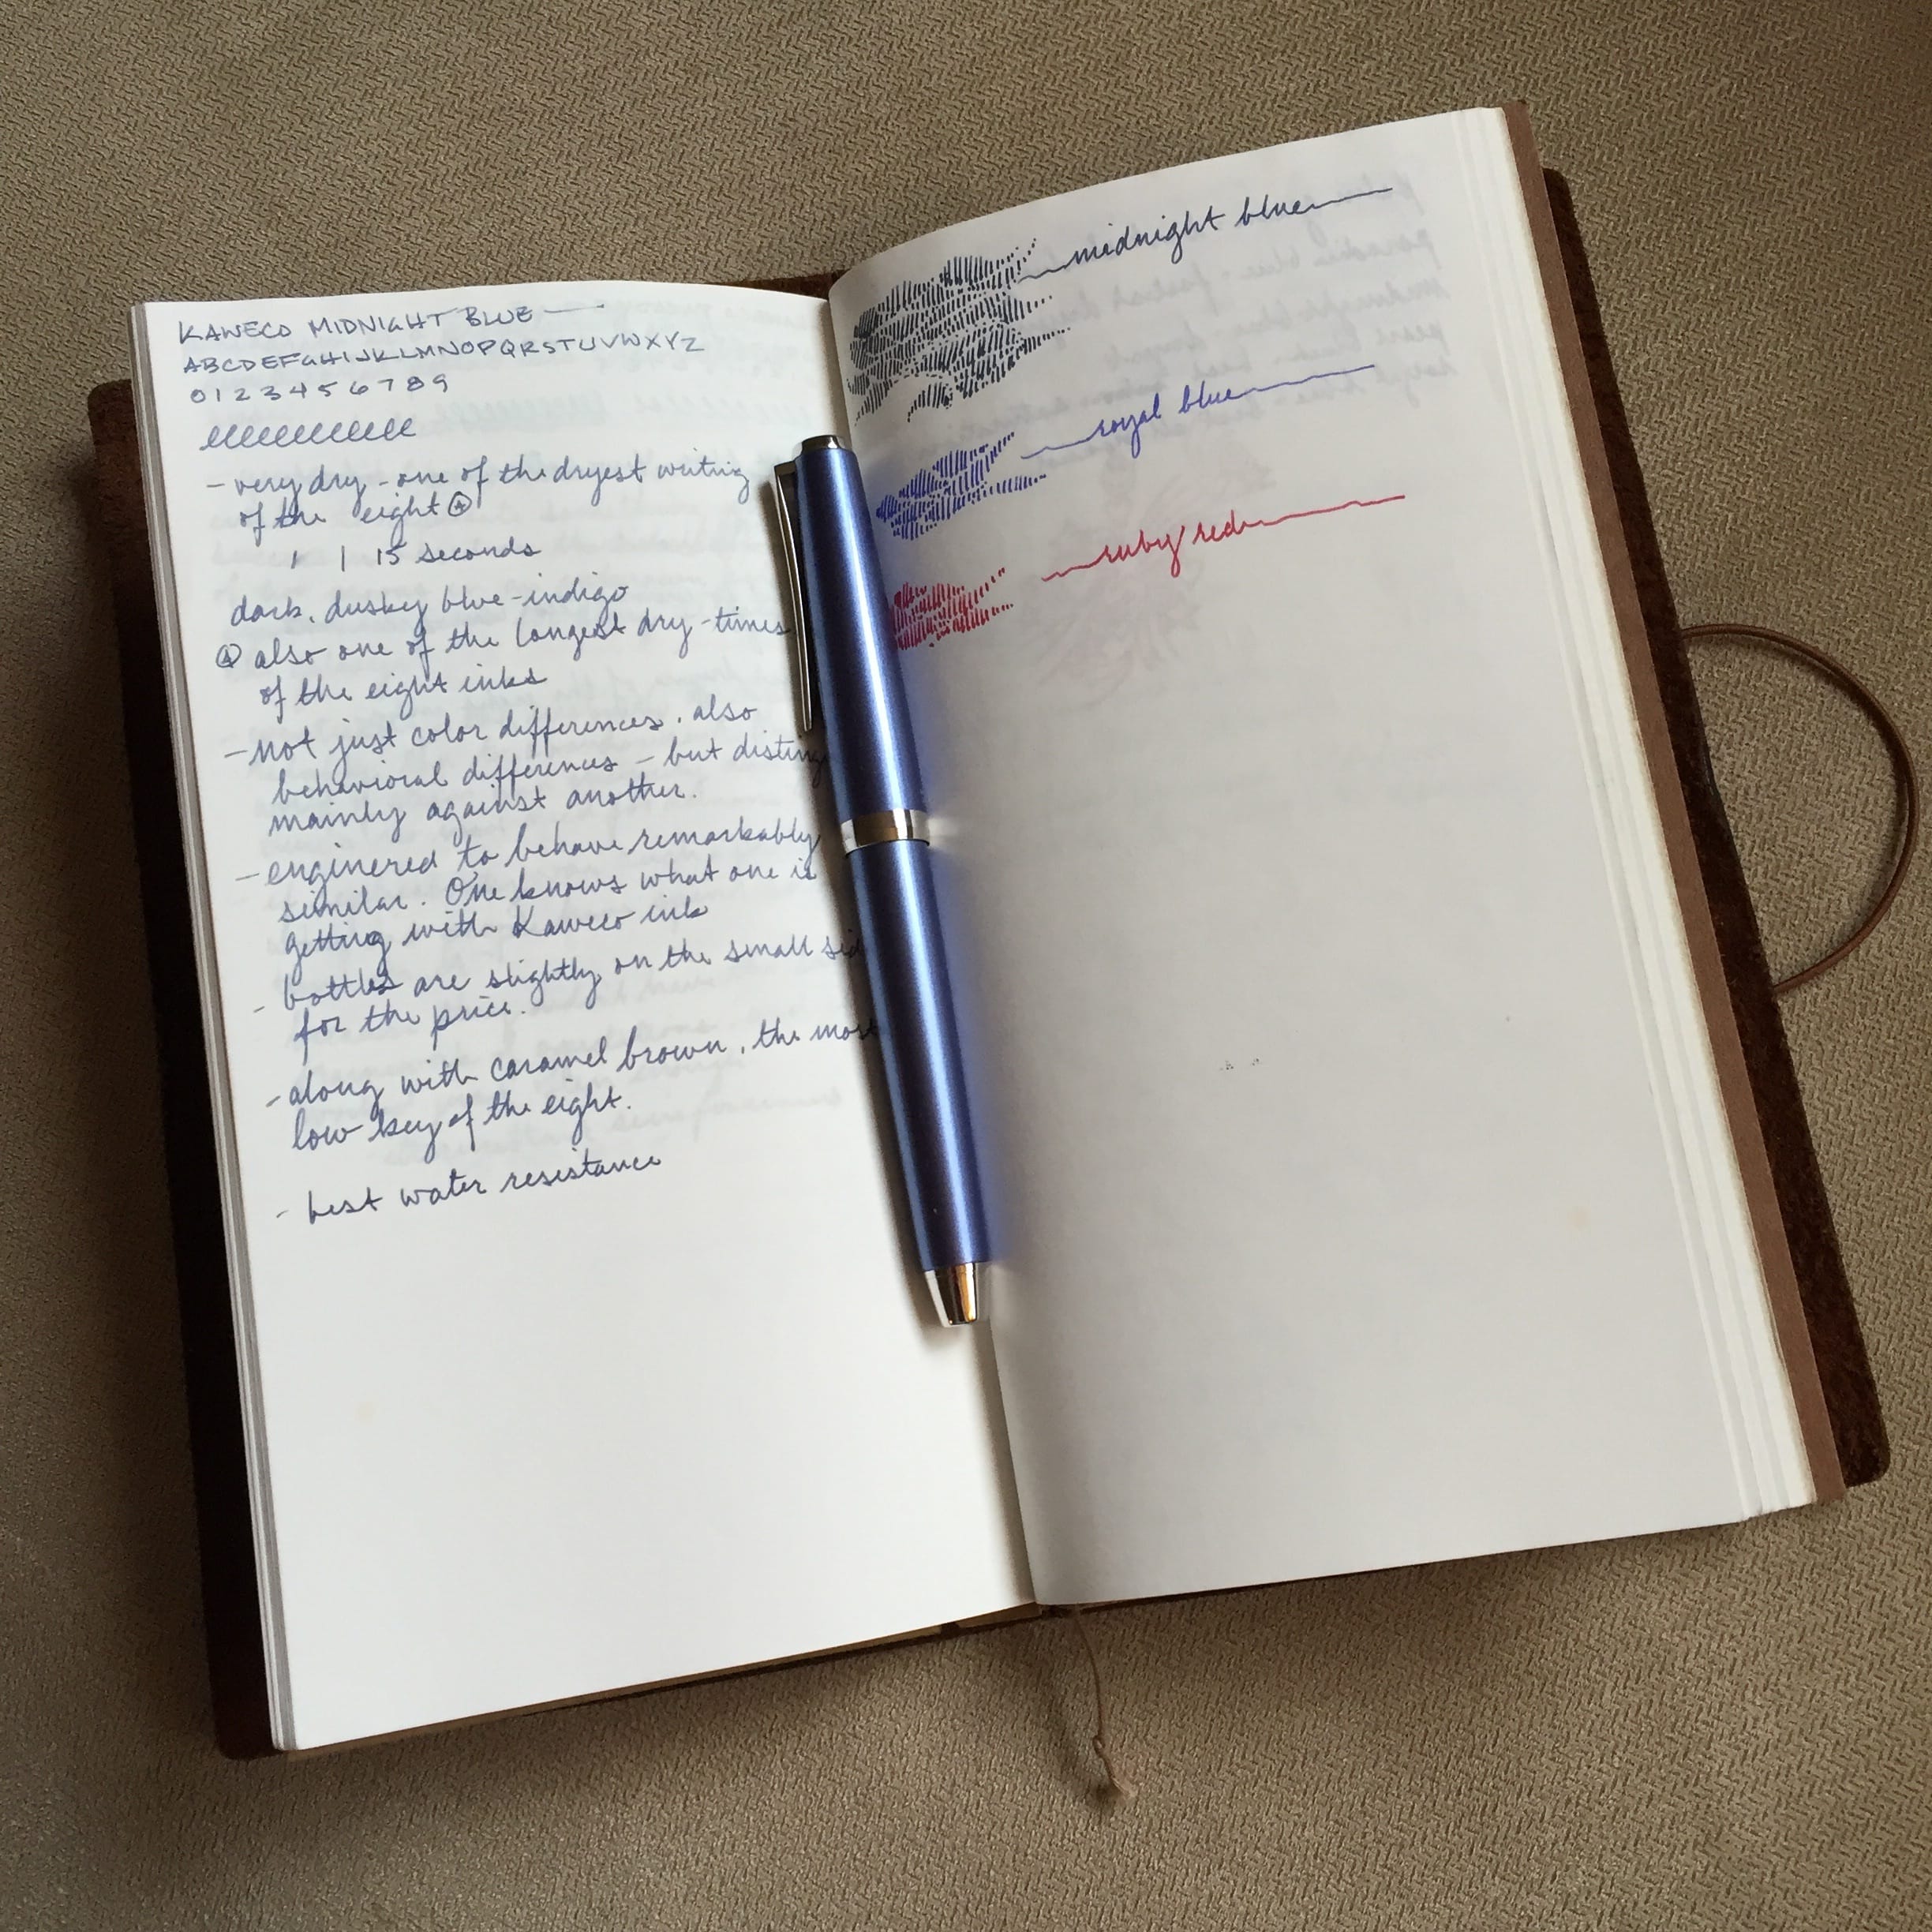 KAWECO MIDNIGHT BLUE
ABCDEFGHIJKLMNOPQRSTUVWXYZ
0123456789
- very dry - one of the dryest writing
of the eight
15 seconds
dark, dusky blue-indigo
also one of the longest dry-times
of the eight inks
- not just color differences, also
behavioral differences - but
mainly against another.
- enginered to behave remarkably
similar. One knows what one is
getting with Kaweco ink
- bottles are slightly on the small
for the price.
- along with caramel brown, the most
low key of the eight.
- best water resistance
midnight blue
royal blue
ruby red